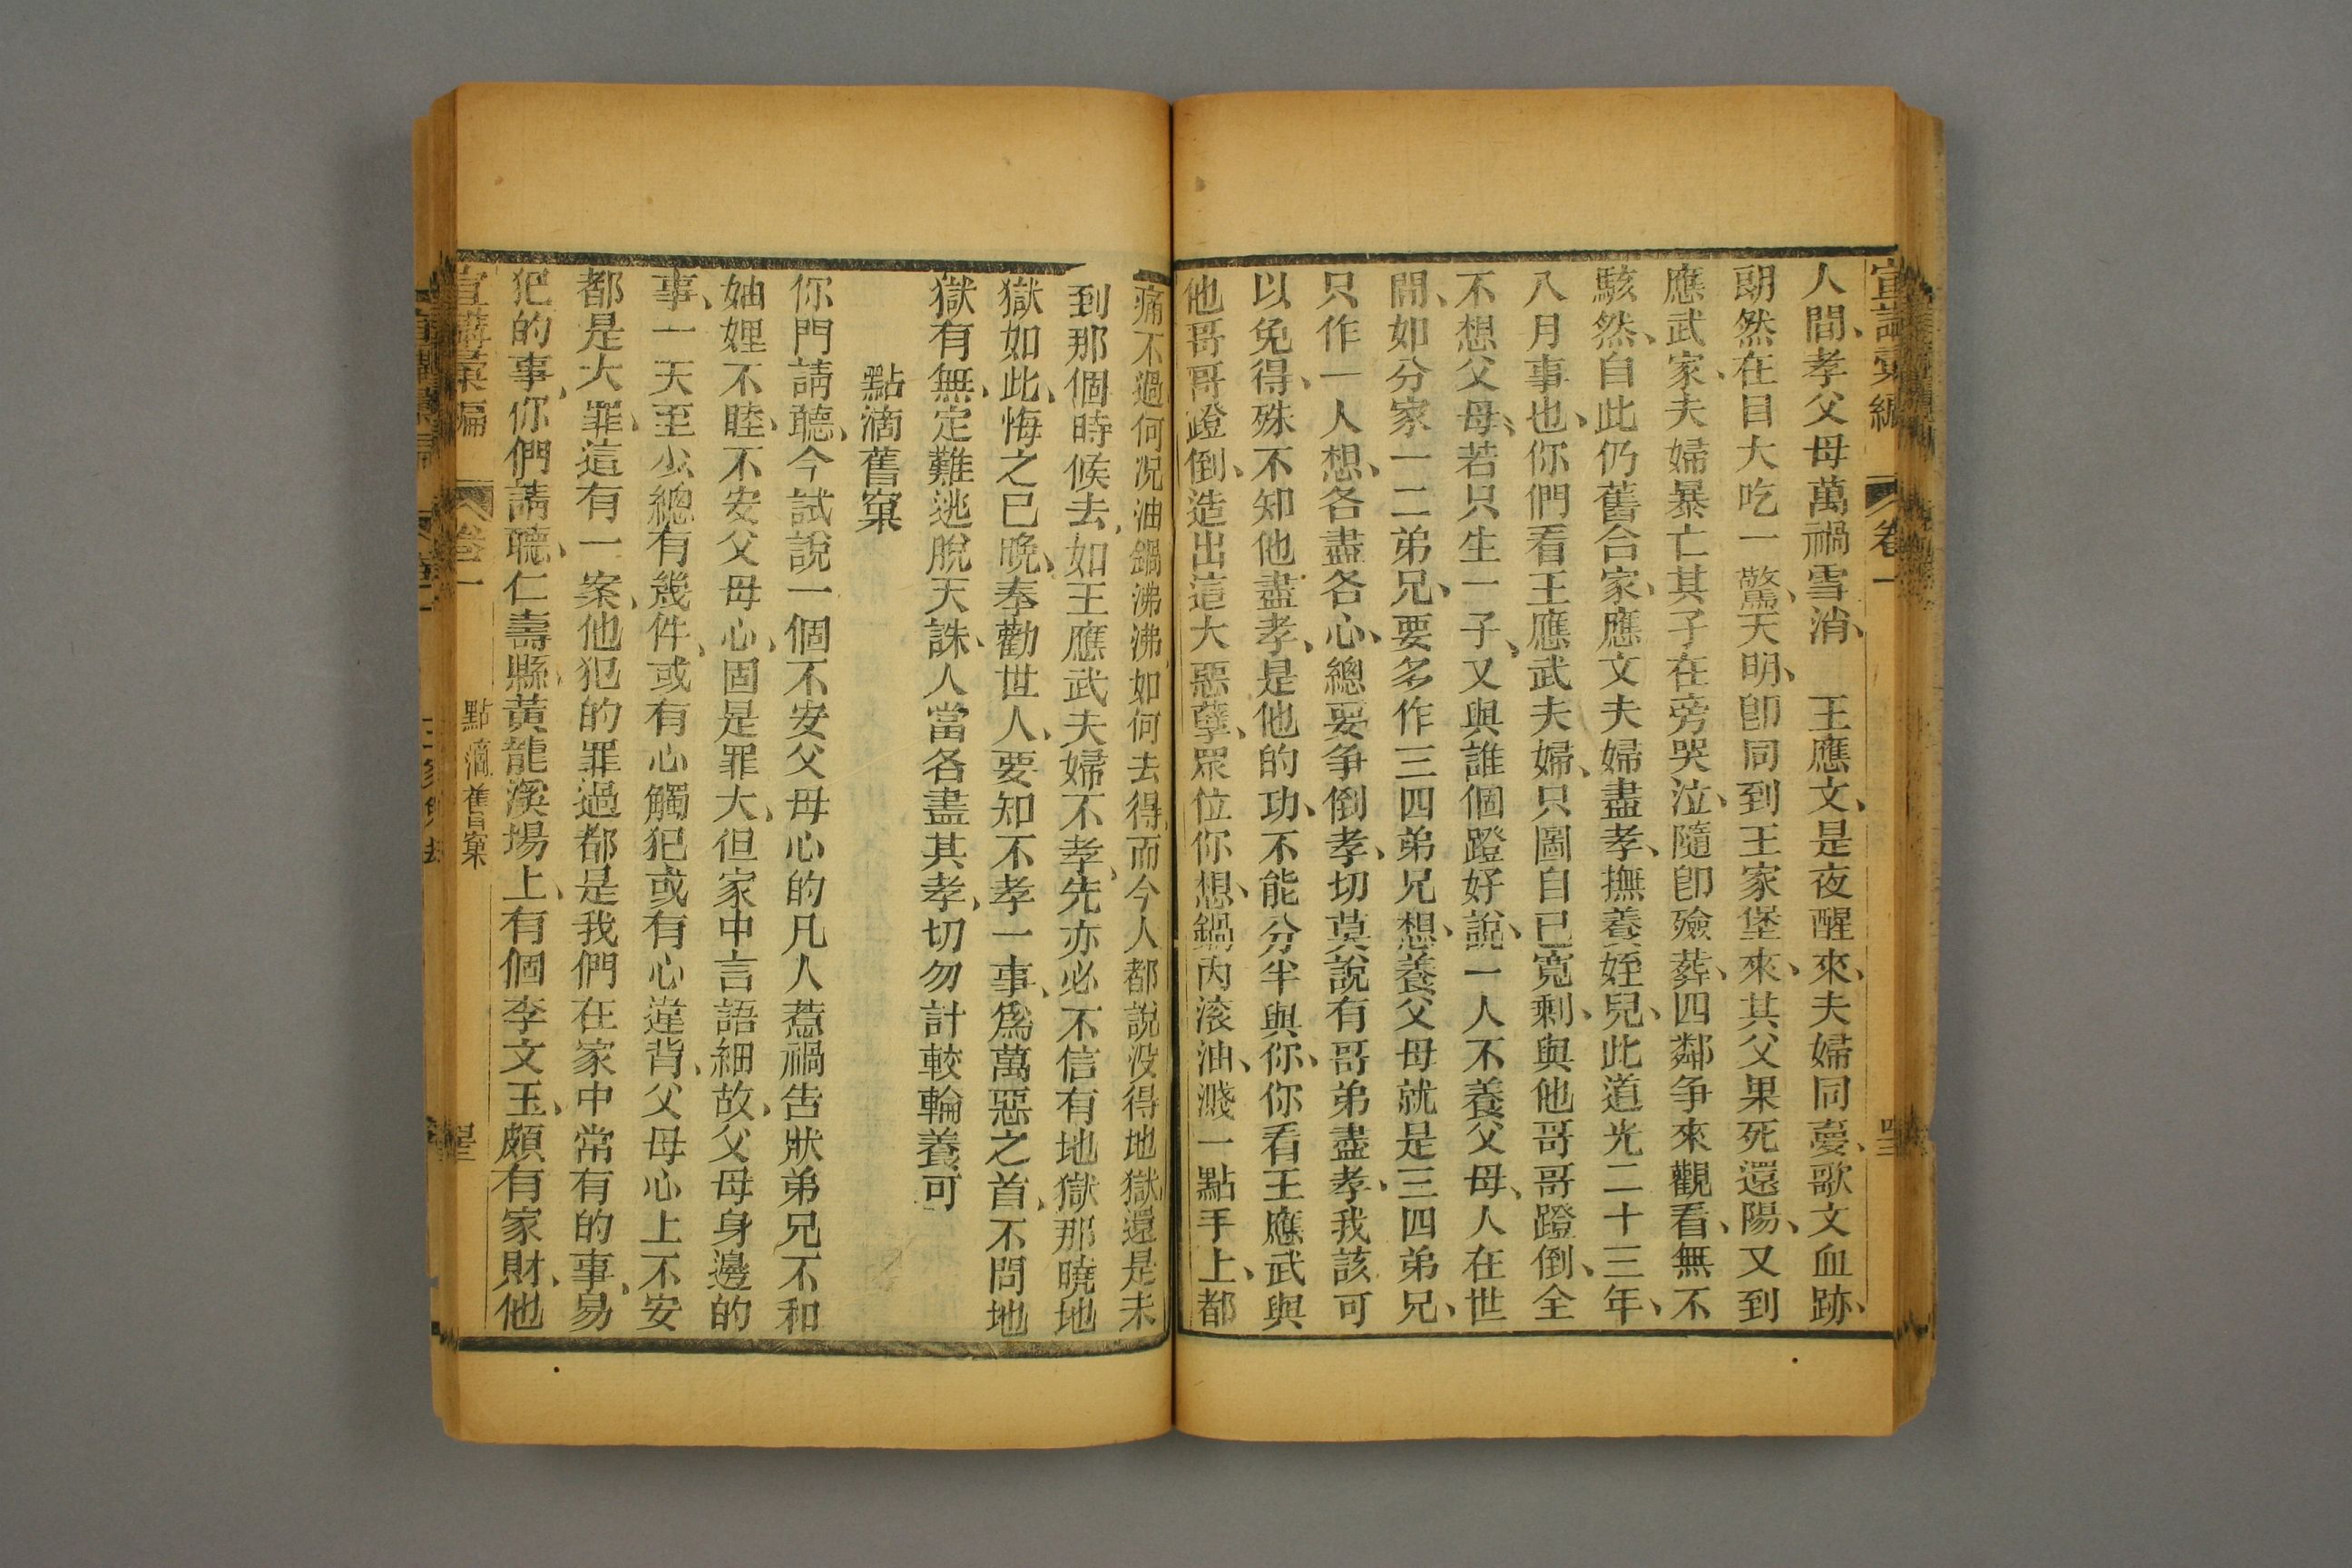 宣講彙編 卷一
人間、孝父母萬禍雪消、 王應文、是夜醒來、夫婦同憂、歌文血跡、
朗然在目大吃一驚、天明、卽同到王家堡來、其父果死還陽、又到
應武家、夫婦暴亡其子在旁哭泣、隨卽殮葬、四鄰争來觀看、無不
駭然、自此仍舊合家、應文夫婦盡孝、撫養姪兒、此道光二十三年、
八月事也、你們看王應武夫婦、只圖自已寬剩、與他哥哥蹬倒、全
不想父母、若只生一子、又與誰個蹬好說、一人不養父母、人在世
間、如分家一二弟兄、要多作三四弟兄想、養父母就是三四弟兄、
只作一人想、各盡各心、總要争倒孝、切莫說有哥弟盡孝、我該可
以免得、殊不知他盡孝、是他的功、不能分半與你、你看王應武與
他哥哥蹬倒、造出這大惡孽、眾位你想、鍋內滚油、濺一點手上、都
痛不過何况油鍋沸沸、如何去得、而今人都說没得地獄、還是未
到那個時候去、如王應武夫婦不孝、先亦必不信有地獄那曉地
獄如此、悔之已晚、奉勸世人、要知不孝一事、爲萬惡之首、不問地
獄有無、定難逃脫天誅、人當各盡其孝、切勿計較輪養可
點滴舊窠
你門請聽、今試說一個不安父母心的凡人惹禍告狀弟兄不和
妯娌不睦、不安父母心、固是罪大、但家中言語細故、父母身邊的
事、一天至少總有幾件、或有心觸犯或有心違背、父母心上不安
都是大罪、這有一案、他犯的罪過都是我們在家中常有的事、易
犯的事、你們請聽、仁壽縣、黃龍溪場上、有個李文玉、頗有家財、他
宣講彙編 卷一 點滴舊窠